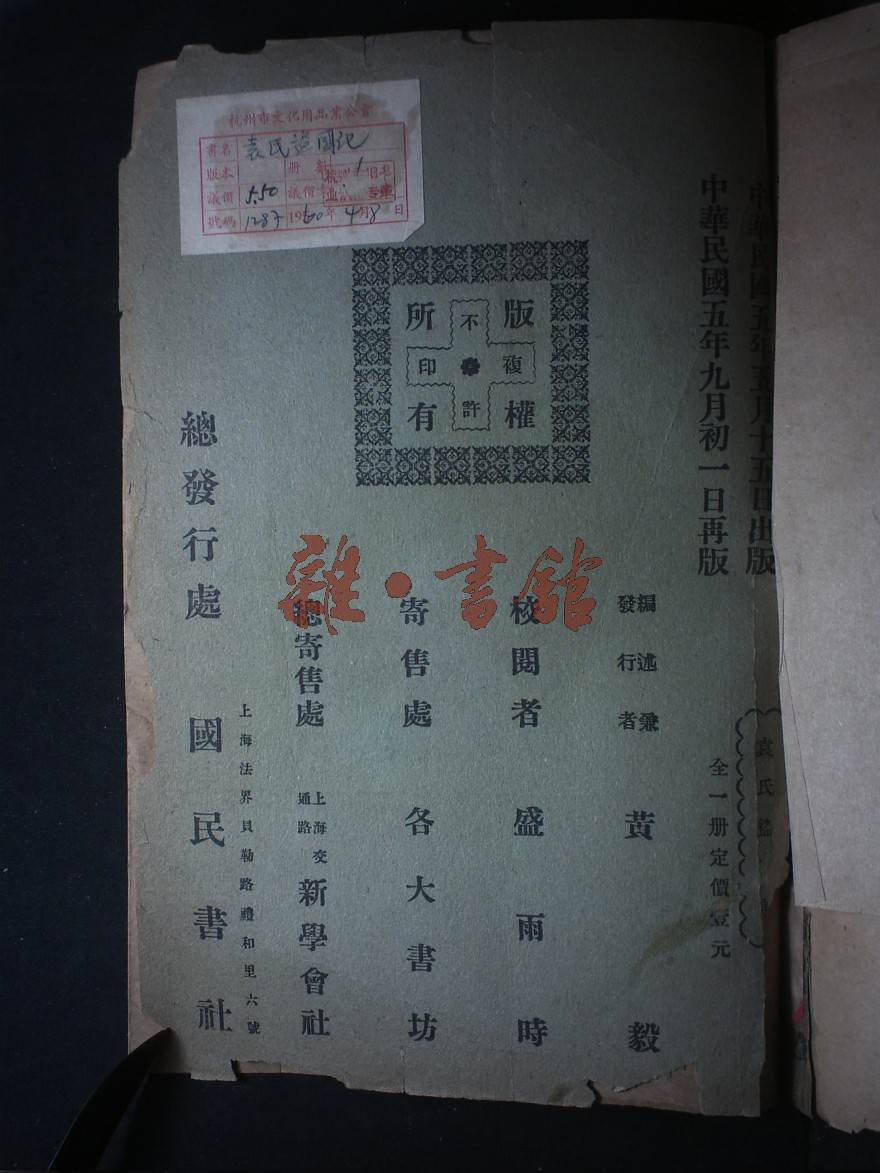 杭州市文化用品業公會
書名 袁氏盜國記
版本 冊數 1
議價 5.50 議價
號碼 1287 1960年4月8日
中華民國五年五月十五日出版
中華民國五年九月初一日再版
袁氏盜
全一册定價壹元
版權所有
不許複印
編述兼發行者 黃毅
校閱者 盛雨時
寄售處 各大書坊
總寄售處 上海交通路 新學會社
上海法界貝勒路禮和里六號
總發行處 國民書社
雜·書館